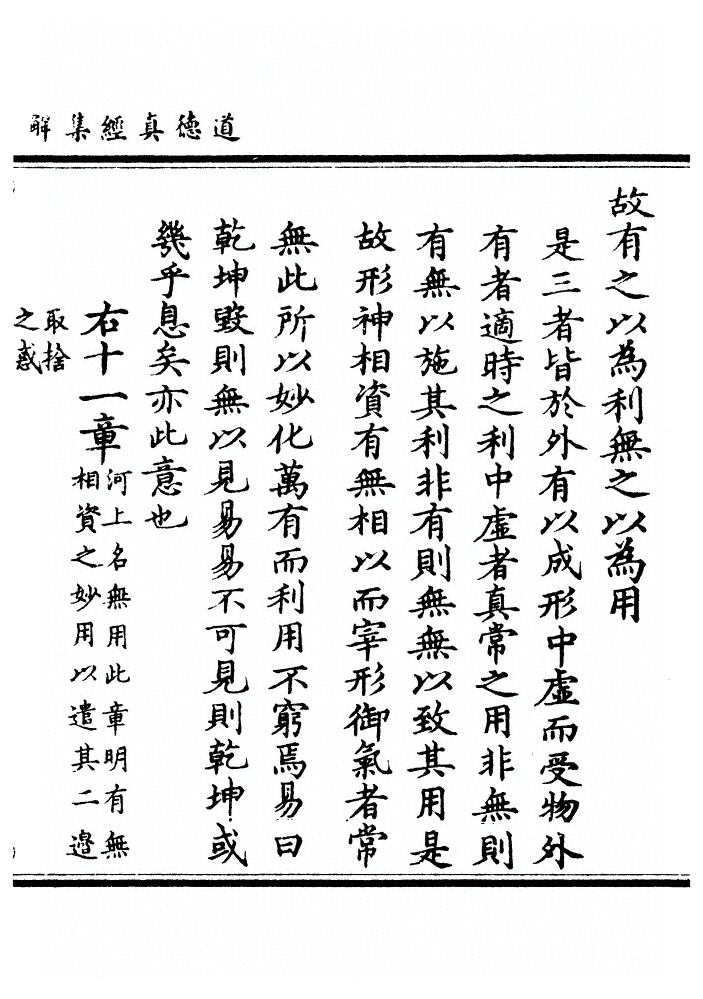 道德真經集解
故有之以為利無之以為用
是三者皆於外有以成形中虛而受物外
有者適時之利中虛者真常之用非無則
有無以施其利非有則無無以致其用是
故形神相資有無相以而宰形御氣者常
無此所以妙化萬有而利用不窮焉易曰
乾坤毀則無以見易易不可見則乾坤或
幾乎息矣亦此意也
右十一章
河上名無用此章明有無
相資之妙用以遣其二邉
取捨
之惑